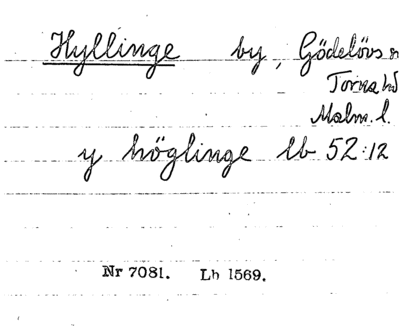 Hyllinge by, Gödelövs sn
Torna hd
Malm. l.
y höglinge lb 52:12
Nr 7081. Lb 1569.